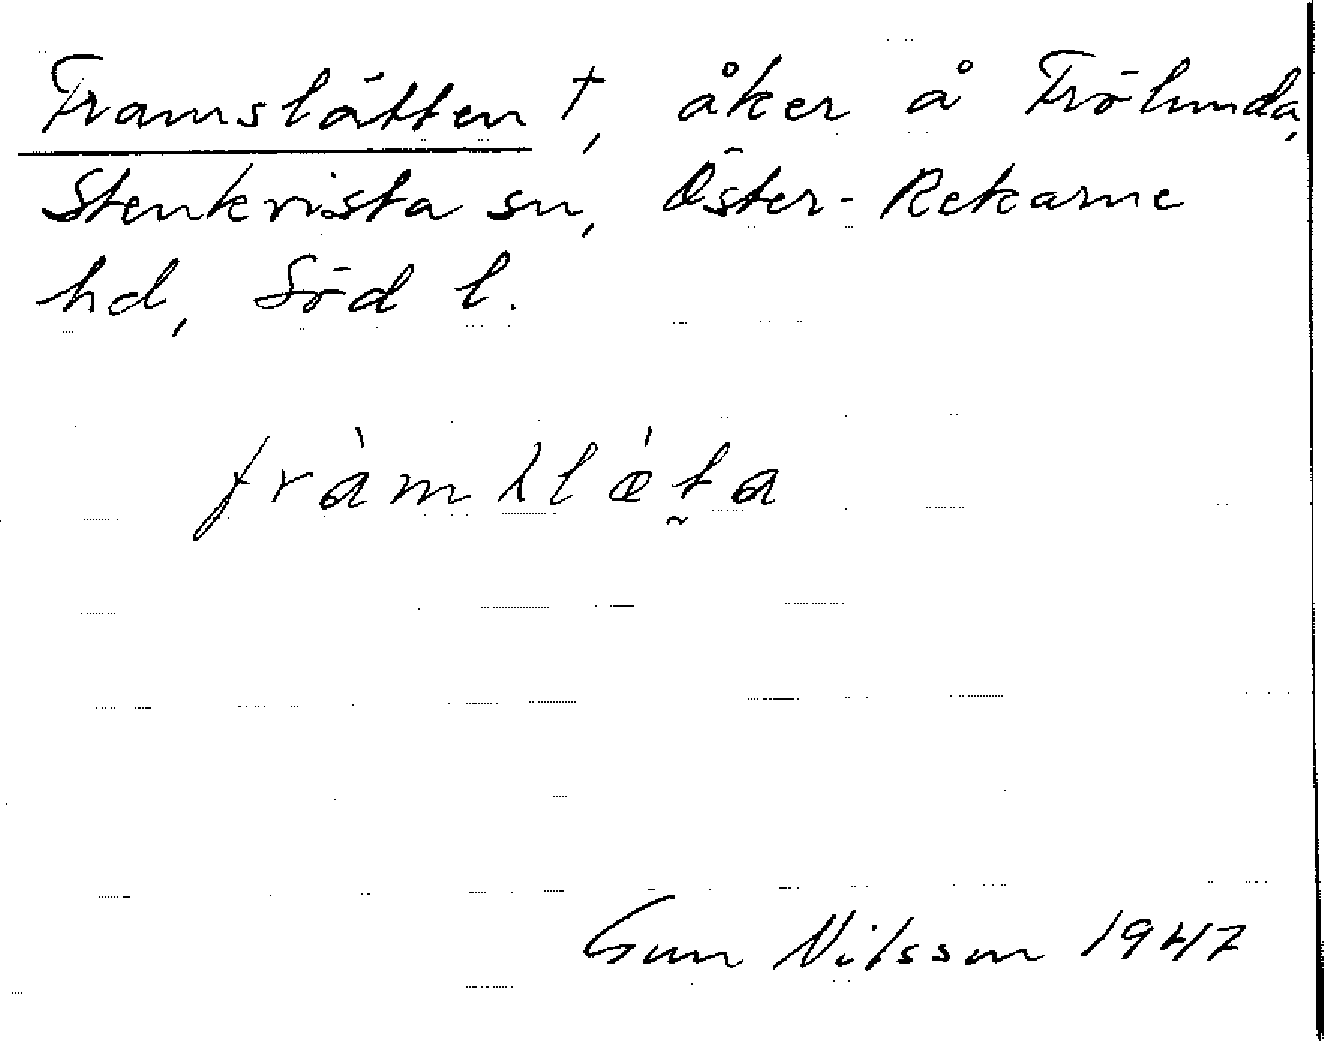 Framslätten †, åker å Frölunda,
Stenkvista sn, Öster-Rekarne
hd, Söd l.
fràmslǽta
Gun Nilsson 1947